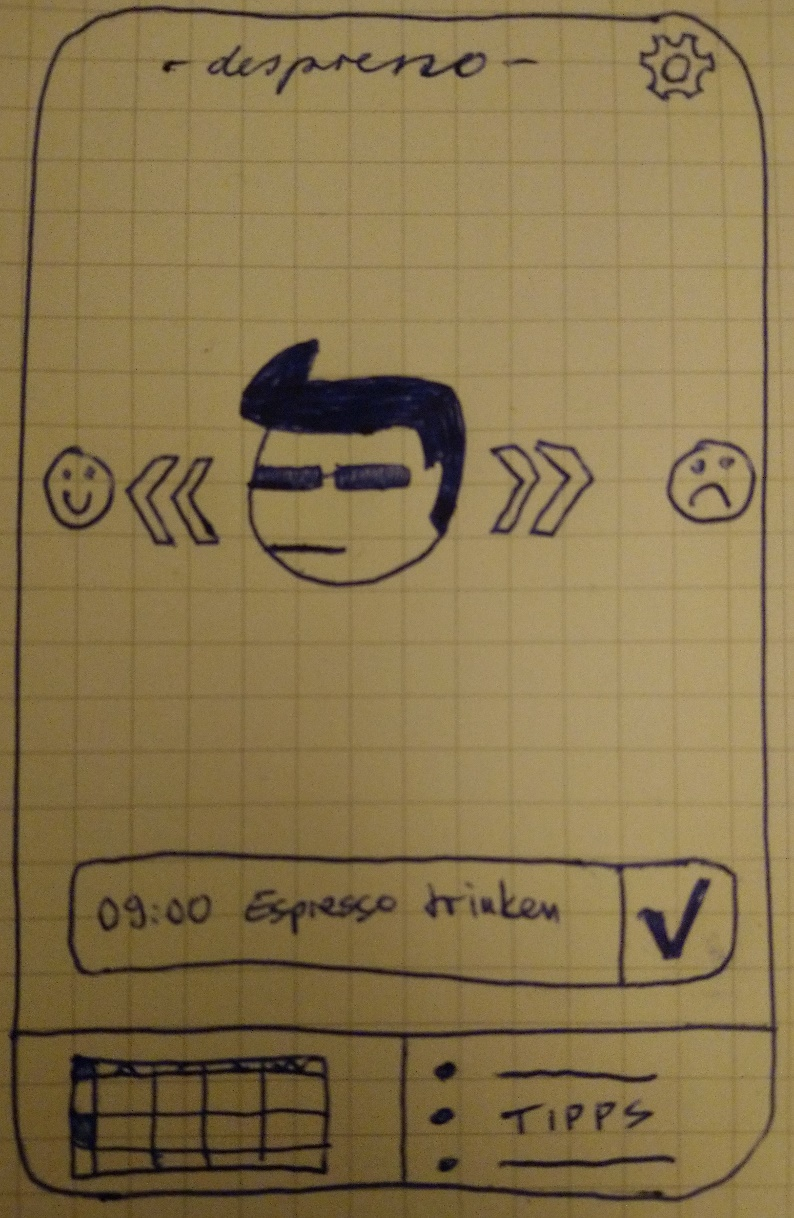 - despresso -
09:00 Espresso trinken
TIPPS